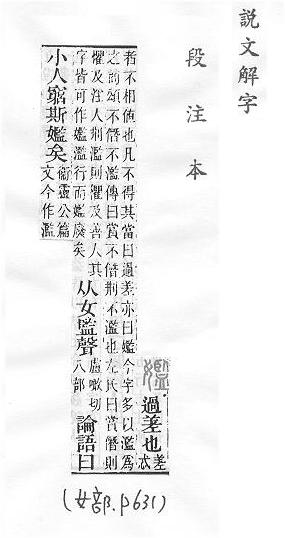 說文解字
段注本
㜮 過差也 差
忒
者不相值也凡不得其當曰過差亦曰㜮今字多以濫爲
之商頌不僭不濫傳曰賞不僭刑不濫也左氏曰賞僭則
懼及淫人刑濫則懼及善人其
字皆可作㜮濫行而㜮廢矣
从女監聲 盧瞰切
八部 論語曰
小人竆斯㜮矣 衞靈公篇
文今作濫
(女部.p631)